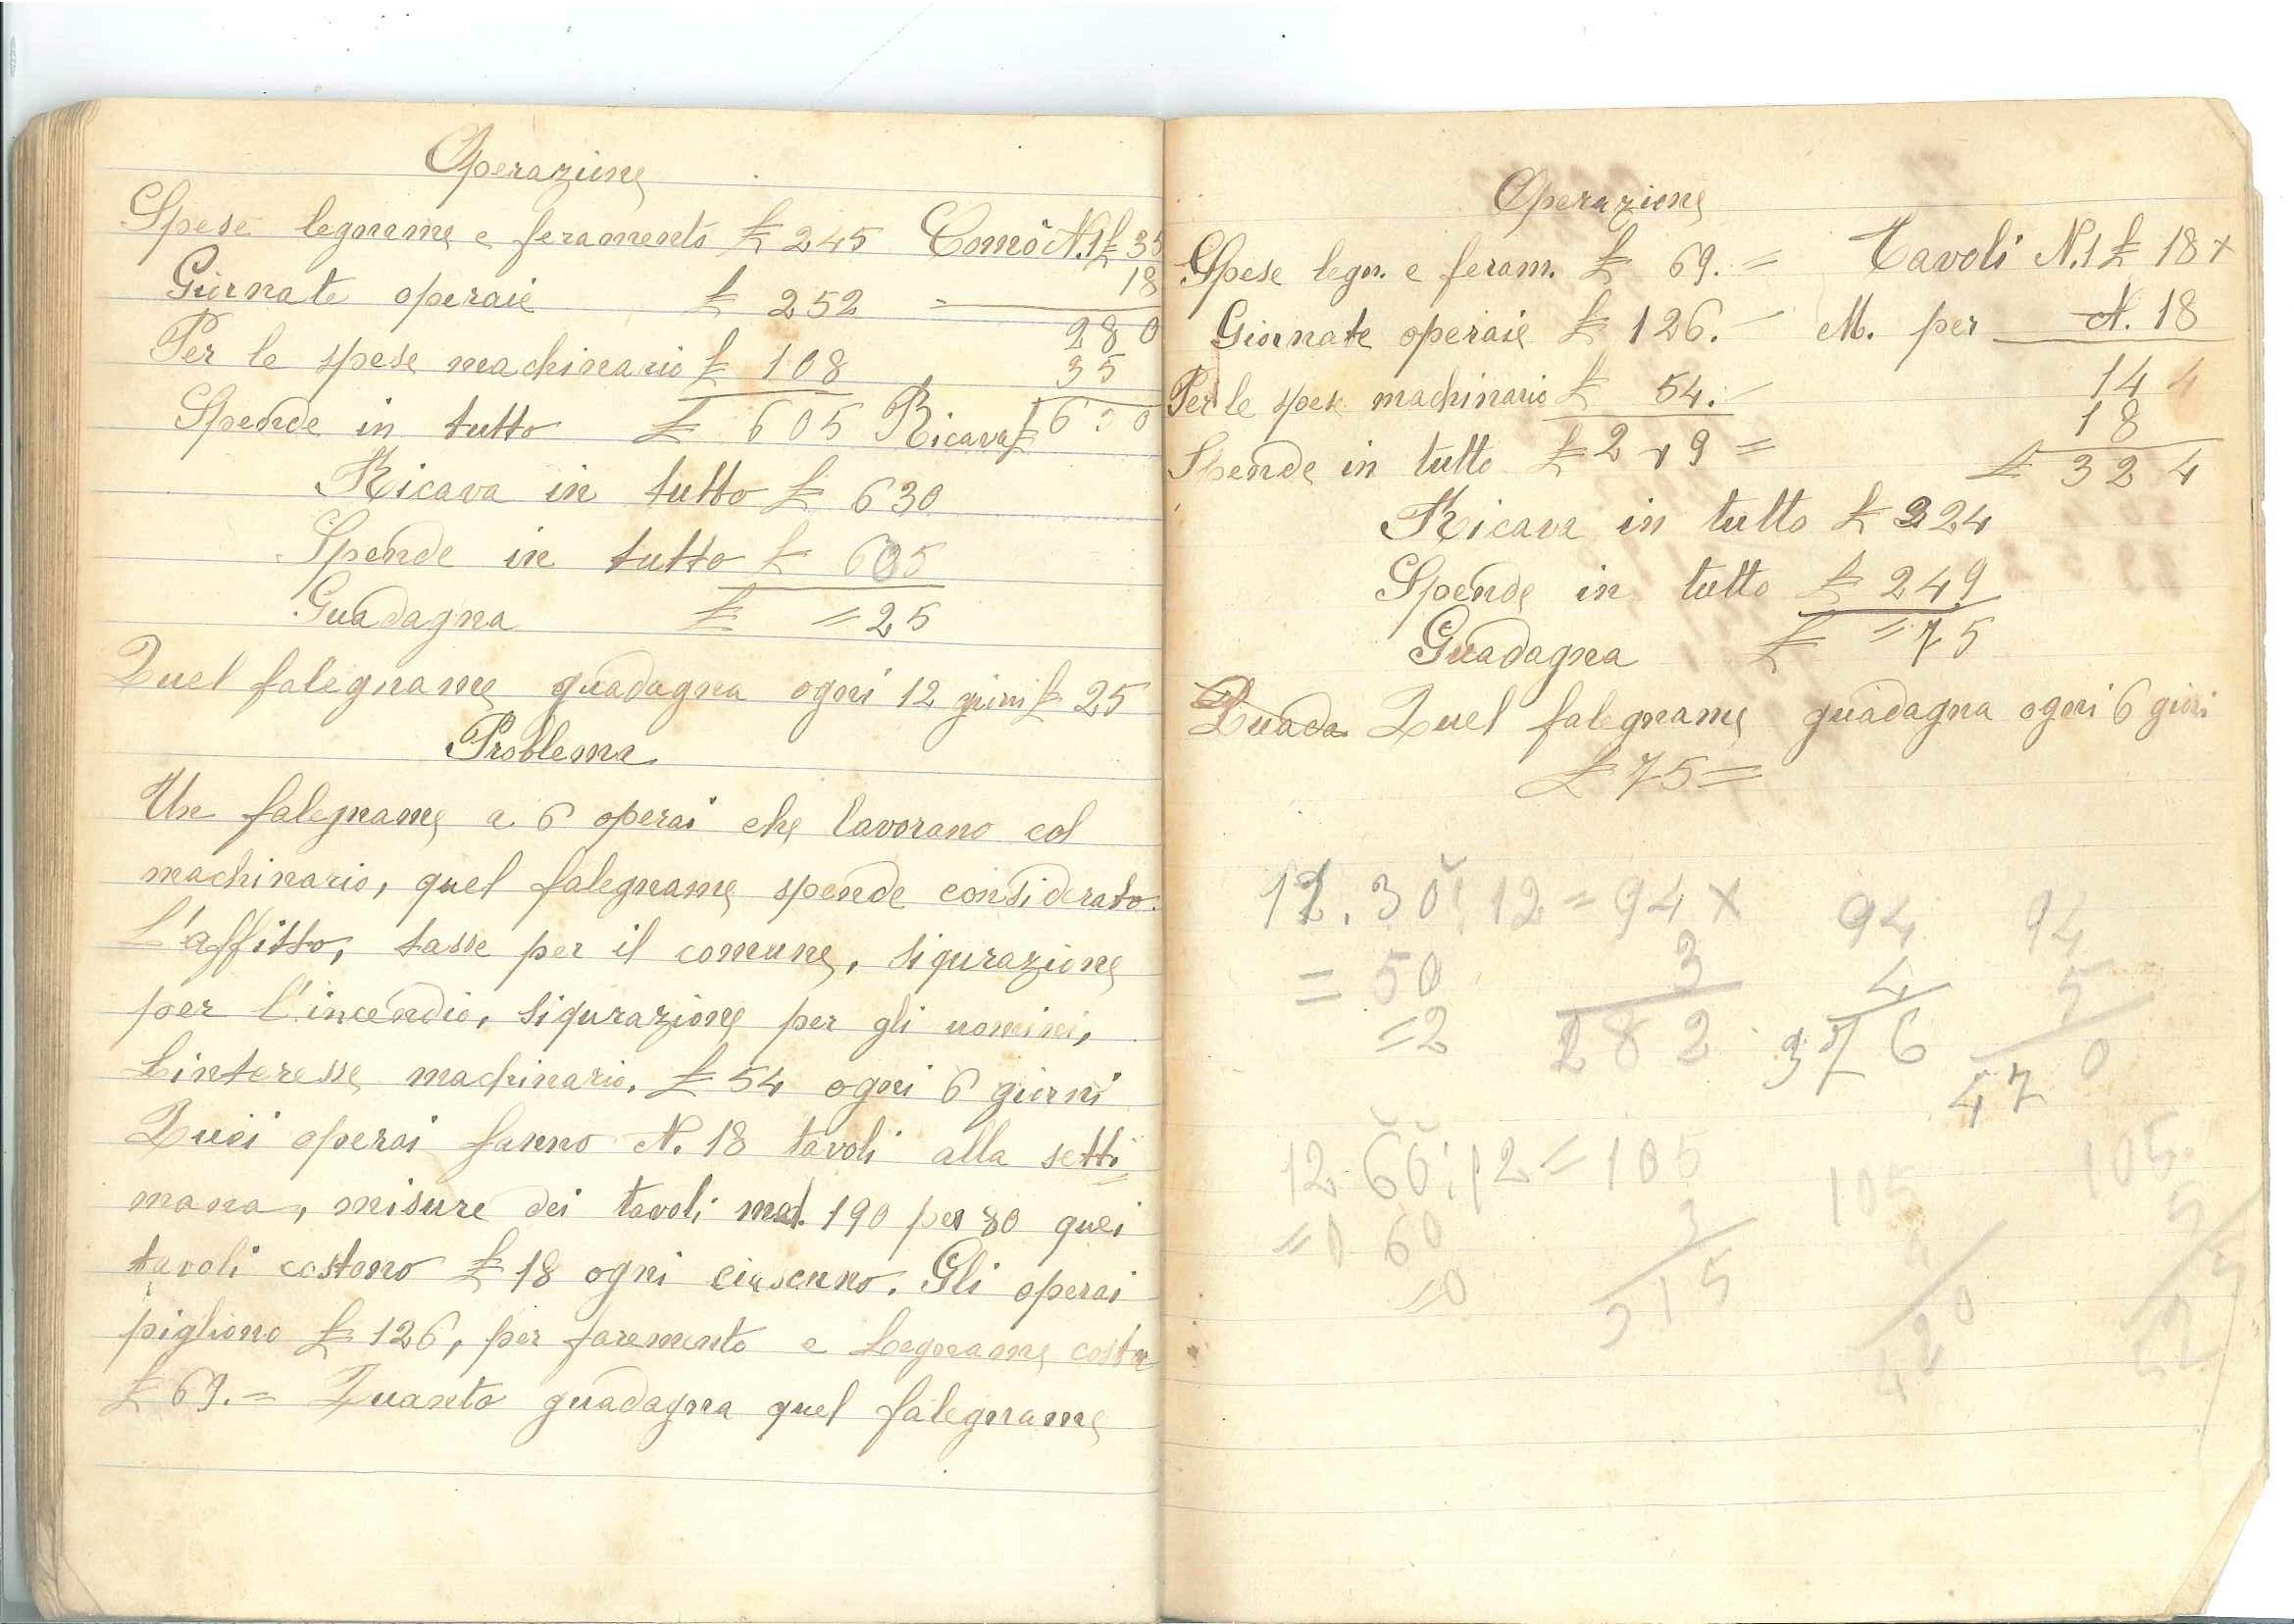 Operazione
Spese legname e feramento £ 245 Comò N.1 £ 35
18
Giornate operaie £ 252 =
280
Per le spese machinario £ 108
35
Spende in tutto £ 605 Ricava £ 630
Ricava in tutto £ 630
Spende in tutto £ 605
Guadagna £ =25
Quel falegname guadagna ogni 12 giorni £ 25
Problema
Un falegname a 6 operai che lavorano col
machinario, quel falegname spende considerato
L'affitto, tasse per il comune, sigurazione
per l'incendio, sigurazione per gli uomini,
Linteresse machinario, £ 54 ogni 6 giorni
Quei operai fanno N. 18 tavoli alla setti=
mana, misure dei tavoli 190 per 80 quei
tavoli costono £ 18 ogni ciascuno. Gli operai
pigliono £ 126, per faremento e Legname costa
£ 69.= Quanto guadagna quel falegname
Operazione
Spese legn. e feram. £ 69.= Tavoli N.1 £ 18 x
Giornate operaie £ 126.- M. per N. 18
144
Per le spese machinario £ 54.-
18
Spende in tutto £ 249 = £ 324
Ricava in tutto £ 324
Spende in tutto £ 249
Guadagna £ =75
Quada Quel falegname guadagna ogni 6 giorni
£ 75=
12.30:12=94 x 94 94
= 50 3 4 5
=2 282 376 470
12 60:12=105 105 105
=0 60 3 4 5
=0 315 420